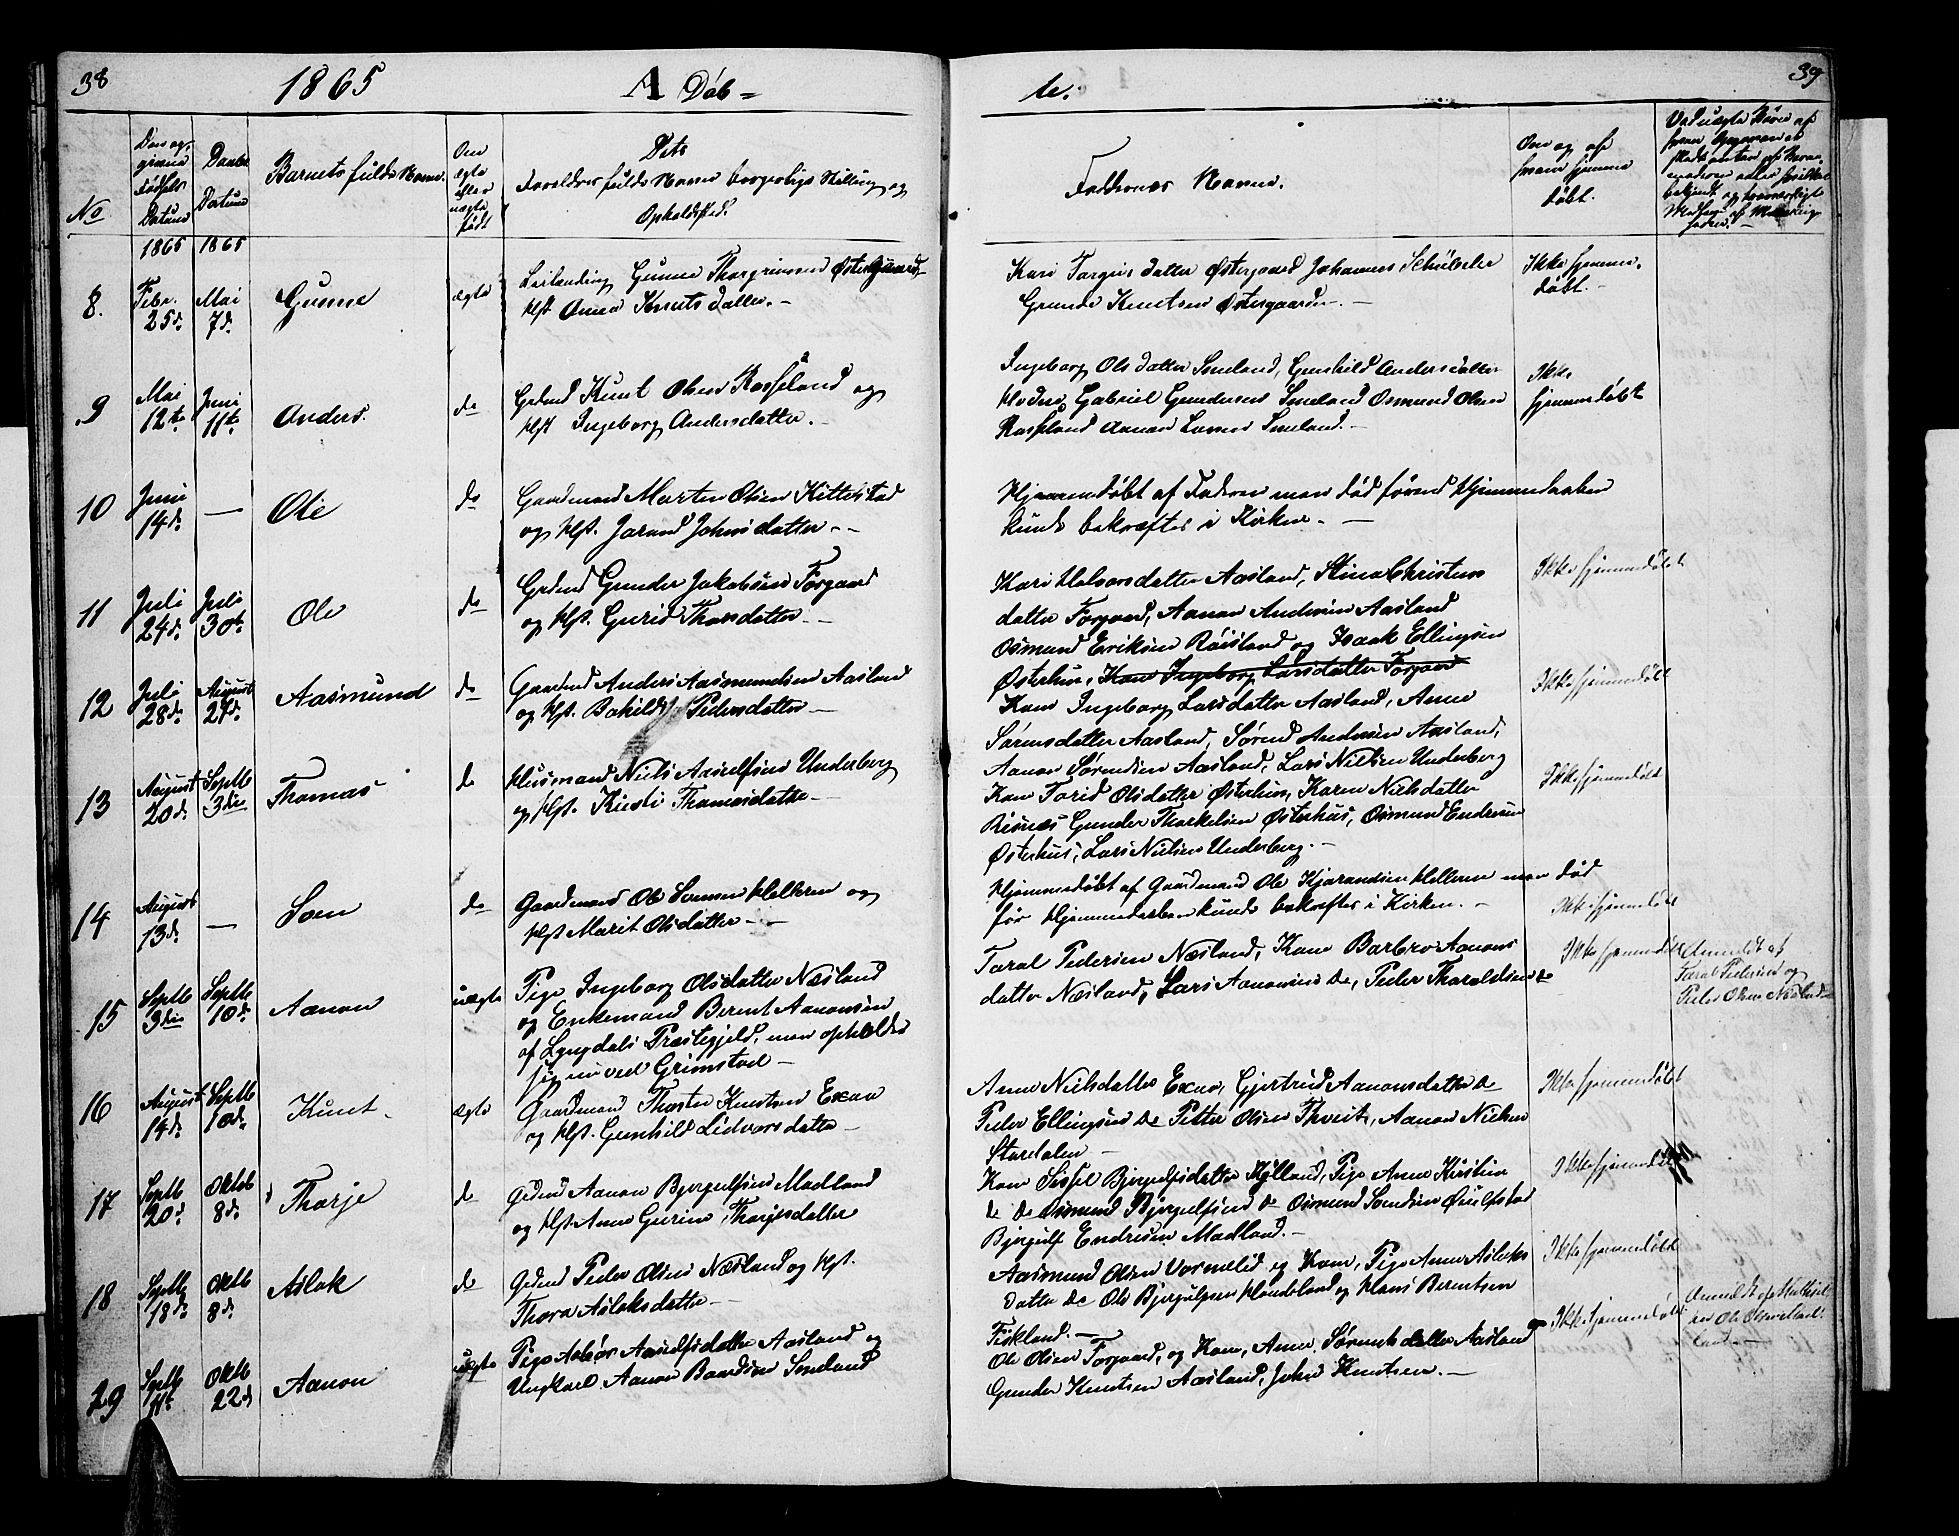 38
1865
A Døb =
te.
39
No
Datum
Daabs
Datum
Barnets fulde Navn.
Om
ægte
eller
uægte
født
Dets
Forældres fulde Navne borgerlige Stilling og
Opholdsted.
Faddernes Navne.
Om og af
hvem hjemme
døbt.
1865 1865
8.
Febr.
25d.
Mai
7d.
Gunne
ægte
Leilending Gunne Thorgrimsen Østergaard
Hst. Anna Knutsdatter. –
Kari Torgrisdatter Østergaard Johannes
Gunde Knutsen Østergaard –
Ikke hjemme.
døbt. –
9
Mai
12te
Juni
11te
Anders.
do
Grdmd Knut Olsen Rosseland og
Hst Ingeborg Andersdatter. –
Ingeborg Olsdatter Smeland, Gunhild Andersdatter
Gabriel Gundersen Smeland Osmund Olsen
Rosseland Aanon Larsen Smeland. –
Ikke
hjemmedøbt
10
Juni
14d.
—
Ole
do
Gaardmand Morten Olsen Kittelstad
og Hst. Jorand Johnsdatter. –
Hjemmedøbt af Faderen men død førend Hjemmedaaben
kunde bekræftes i Kirken. –
11
Juli
24d.
Juli
30te
Ole
do
Grdmd Gunder Jakobsen Forgaard
og Hst. Gurid Thorsdatter. –
Kari Halvorsdatter Aasland, Stina Christens
datter Forgaard, Aanon Andersen Aasland
Osmund Eriksen Røisland og Isaak Ellingsen
Østerhus,
Ikke hjemmedøbt
12
Juli
28d.
August
27d.
Aasmund
do
Gaardmd Anders Aasmundsen Aasland
og Hst. Bohild Pedersdatter –
Kone Ingeborg Larsdatter Forgaard
Kone Ingeborg Larsdatter Aasland, Anne
Sørensdatter Aasland, Sørend Andersen Aasland,
Aanon Sørensen Aasland, Lars Nielsen Underberg
Ikke hjemmedøbt
13
August
20d.
Septb
3die
Thomas
do
Husmand Niels Asulfsen Underberg
og Hst. Kirsti Thomasdatter –
Kone Torid Olsdatter Østerhus, Karen Nielsdatter
Risnes Gunder Thorkelsen Østerhus, Osmund Endresen
Østerhus, Lars Nielsen Underberg. –
Ikke hjemmedøbt
14
August
13d.
—
Sven
do
Gaardmand Ole Svensen Helleren og
Hst Marit Olsdatter –
Hjemmedøbt af Gaardmand Ole Kjørandsen Helleren men død
før Hjemmedaaben kunde bekræftes i Kirken. –
Ikke hjemmedøbt
15
Septb
3die
Septb
10d.
Aanon
uægte
Pige Ingeborg Olsdatter Næsland
og Enkemand Berent Aanonsen
af Lyngdals Præstegjeld, men opholder
sig nu ved Grimstad –
Taral Pedersen Næsland, Kone Barbro Aanons
datter Næsland, Lars Aanonsen do, Peder Tharaldsen do
Ikke hjemmedøbt
Anmeldt af
Taral Pedersen og
Peder Olsen Næsland
16
August
14d.
Septb
10d.
Knut.
ægte
Gaardmand Thoster Knutsen Exaa
og Hst. Gunhild Lidvorsdatter –
Anne Nielsdatter Exaa, Gjertrud Aanonsdatter do
Peder Ellingsen do Petter Olsen Thveit, Aanon Nielsen
Stordalen –
Ikke hjemmedøbt
17
Septb
20d
Oktob
8d.
Thorje
do
Grdmd Aanon Bjørgulfsen Madland
og Hst Anne Gurine Thorjesdatter
Kone Sissel Bjørgulfsdatter Kylland, Pige Anne Kirstine
do do Osmund Bjørgulfsen do Osmund Svendsen Ørulfstad
Bjørgulf Endresen Madland. –
Ikke hjemmedøbt
18
Septb
18d.
Oktb
8d.
Aslak
do
Grdmd Peder Olsen Næsland og Hst.
Thora Aslaksdatter –
Aasmund Olsen Vormelid og Kone, Pige Anne Aslaks
datter do Ole Bjørgulfsen Haudeland og Hans Berentsen
Fiskland. –
Ikke hjemmedøbt
29
Septb
11te
Oktb
22d
Aanon
uægte
Pige Asbør Asulfsdatter Aasland og
Ungkarl Aanon Baardsen Smeland
Ole Olsen Forgaard, og Kone, Anne Sørensdatter Aasland
Gunder Knutsen Aasland, John Knutsen. –
Ikke hjemmedøbt